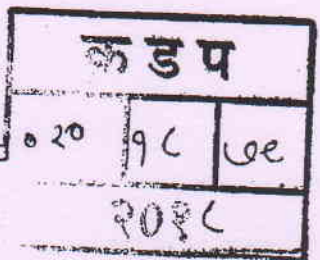 क ड प
.२० १८ ७९
२०१८